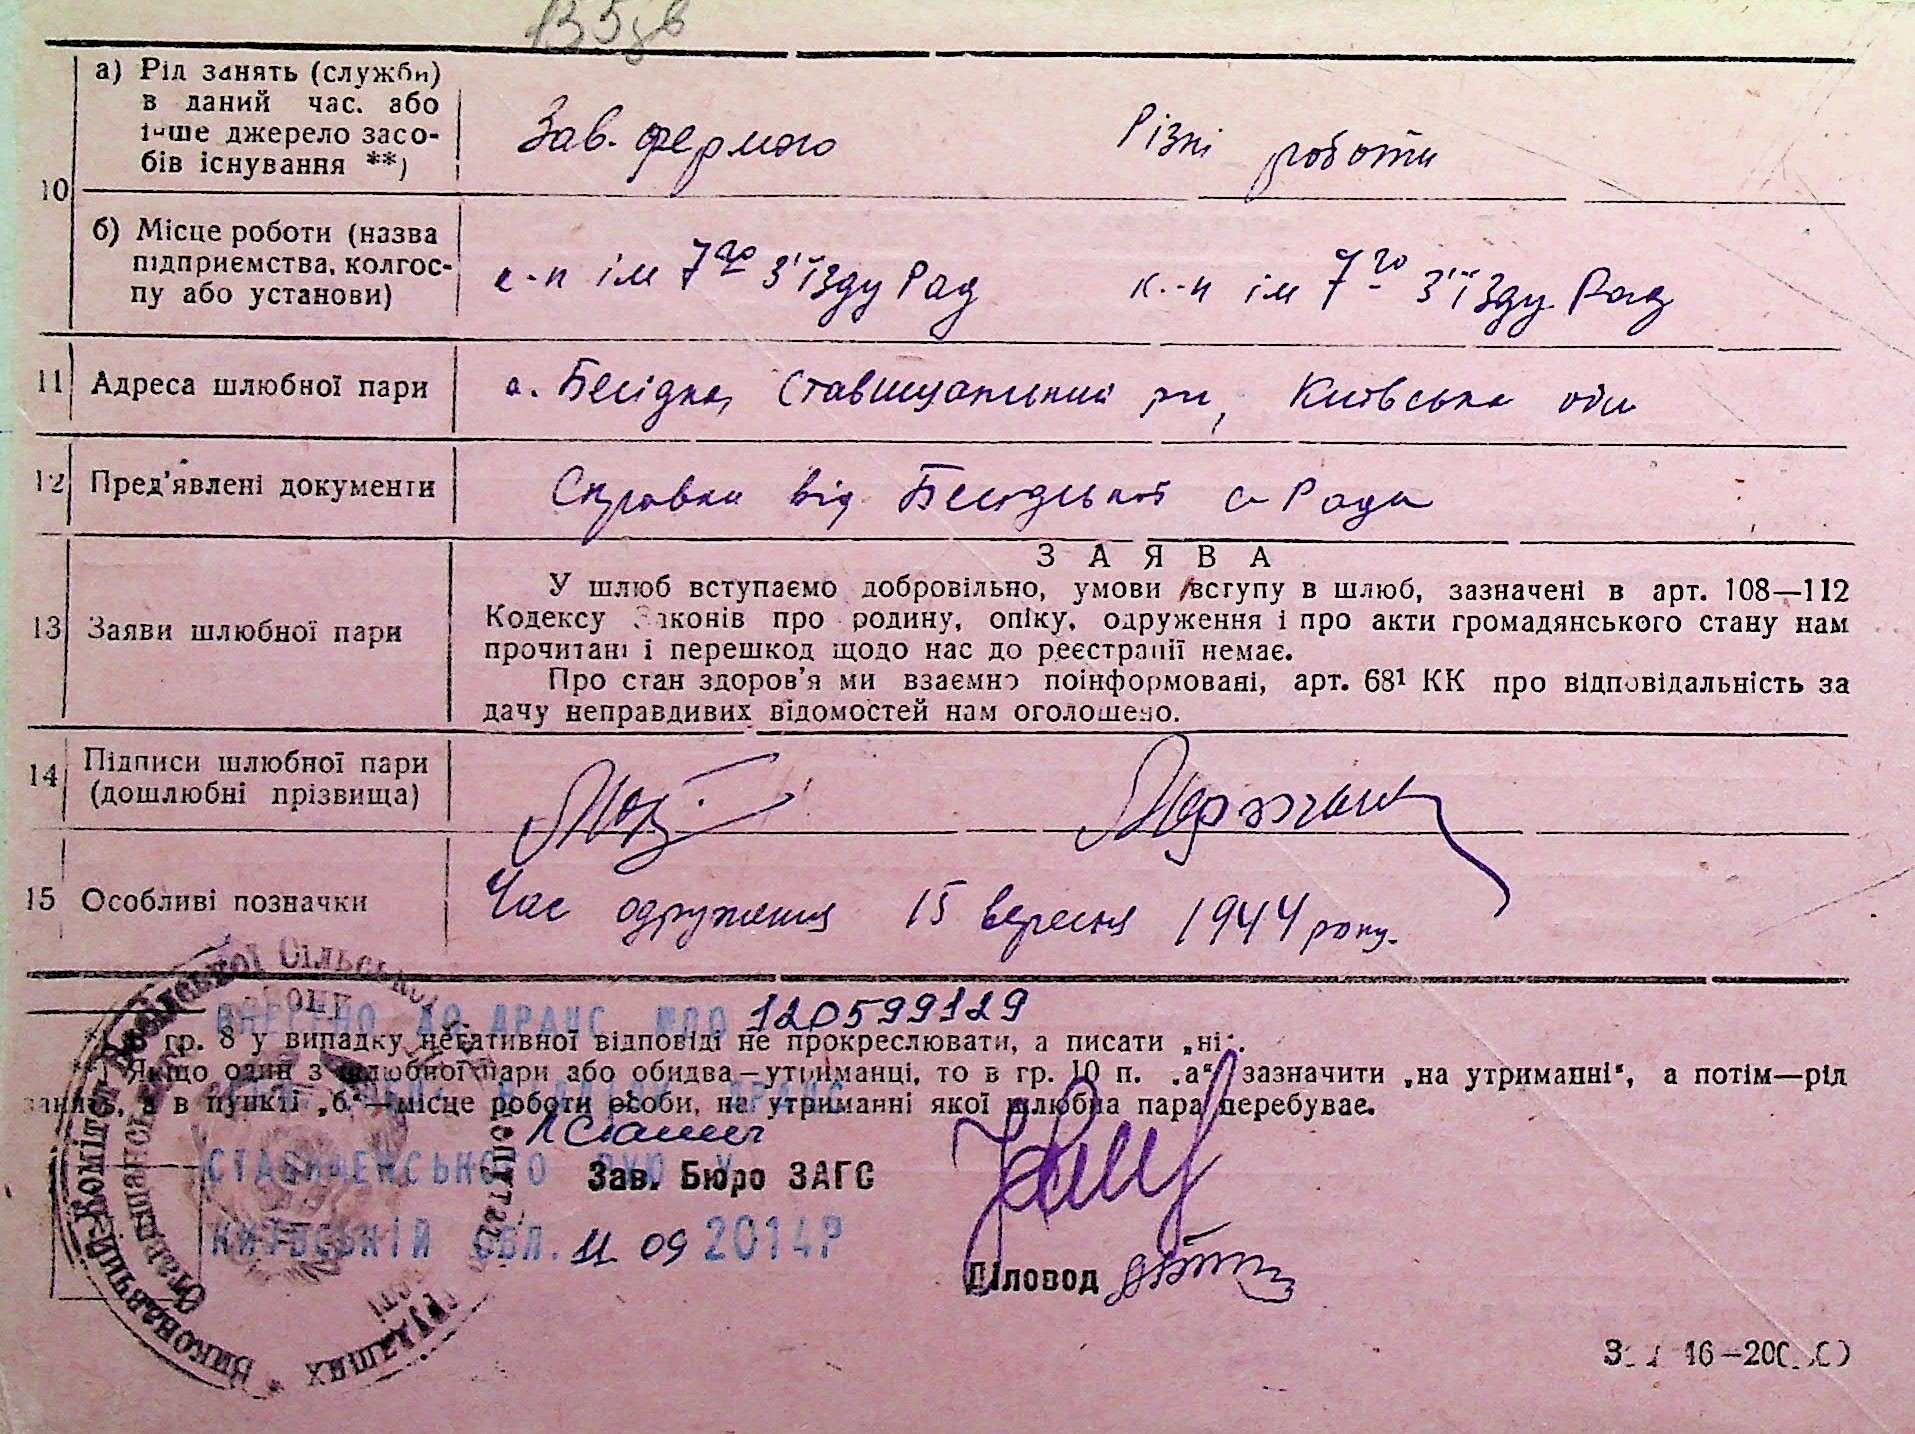 135зв
10
а) Рід занять (служби)
в даний час. або
інше джерело засо-
бів існування **)
Зав. фермою
Різні роботи
б) Місце роботи (назва
підприємства, колгос-
пу або установи)
к-п ім 7го З'їзду Рад
к-п ім 7го З'їзду Рад
11 Адреса шлюбної пари
с. Бесідка, Ставищанський р-н, Київська обл
12 Пред'явлені документи
Справка від Бесідської с Ради
ЗАЯВА
13 Заяви шлюбної пари
У шлюб вступаємо добровільно, умови вступу в шлюб, зазначені в арт. 108—112
Кодексу Законів про родину, опіку, одруження і про акти громадянського стану нам
прочитані і перешкод щодо нас до реєстрації немає.
Про стан здоров'я ми взаємно поінформовані, арт. 68¹ КК про відповідальність за
дачу неправдивих відомостей нам оголошено.
14 Підписи шлюбної пари
(дошлюбні прізвища)
15 Особливі позначки
Час одруження 15 вересня 1944 року.
ВНЕСЕНО ДО ДРАЦС №ПО 120599129
*) В гр. 8 у випадку негативної відповіді не прокреслювати, а писати „ні".
**) Якщо один з шлюбної пари або обидва—утриманці, то в гр. 10 п. „а" зазначити „на утриманні", а потім—рід
занять, а в пункті „б"—місце роботи особи, на утриманні якої шлюбна пара перебуває.
ДРАЦС
СТАВИЩЕНСЬКОГО РУЮ У
Зав. Бюро ЗАГС
КИЇВСЬКІЙ ОБЛ. 11 09 2014Р
Діловод
Виконавчий Комітет Бесідської Сільської
Ради депутатів трудящих
Ставищанського району